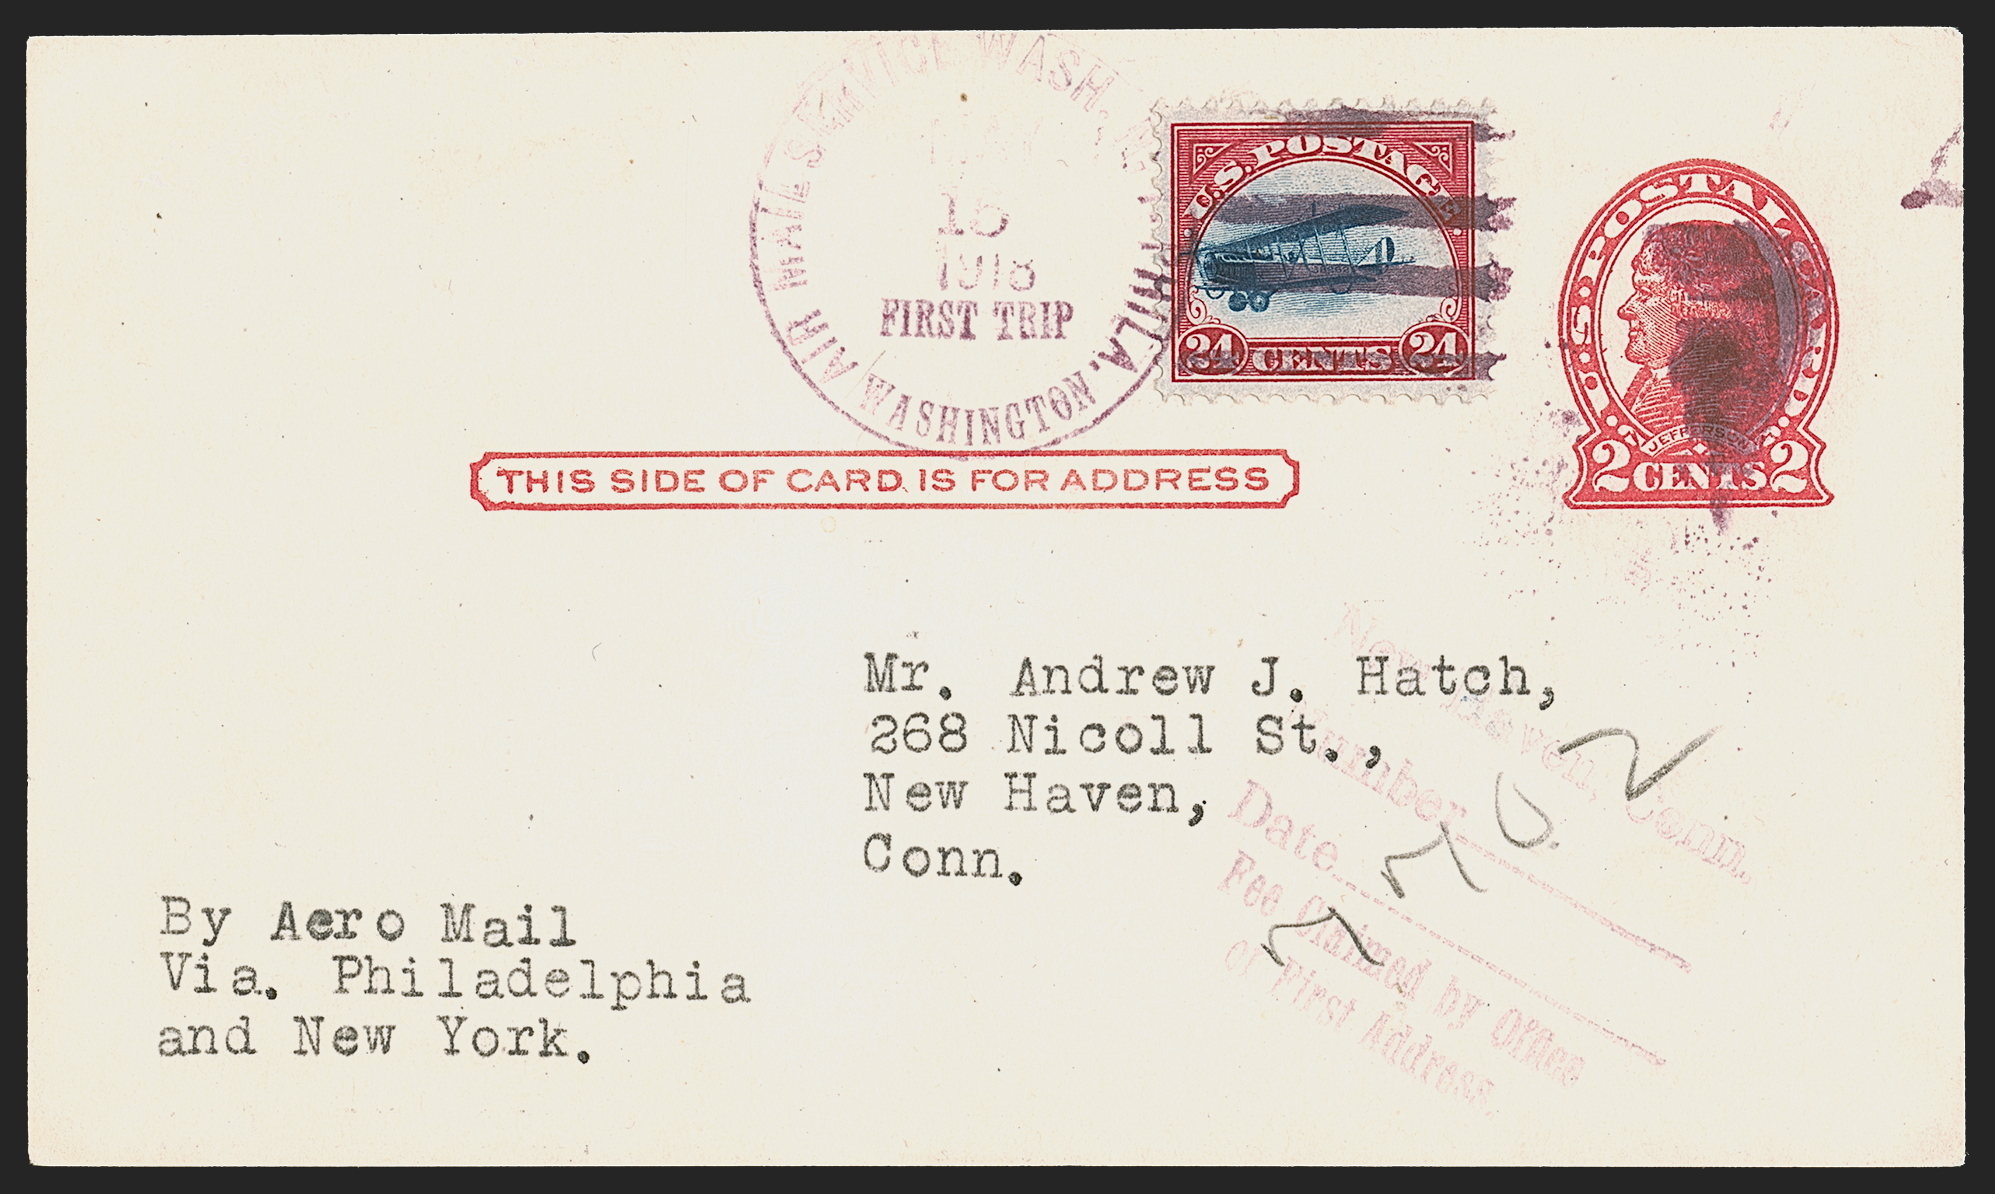 AIR MAIL SERVICE WASH. N.Y. PHILA.
MAY
15
1918
FIRST TRIP
WASHINGTON.
U.S. POSTAGE
24 CENTS 24
U.S. POSTAL CARD
JEFFERSON
2 CENTS 2
THIS SIDE OF CARD IS FOR ADDRESS
Mr. Andrew J. Hatch,
268 Nicoll St.,
New Haven,
Conn.
By Aero Mail
Via. Philadelphia
and New York.
New Haven, Conn.
Number
Date
Fee Claimed by Office
of First Address.